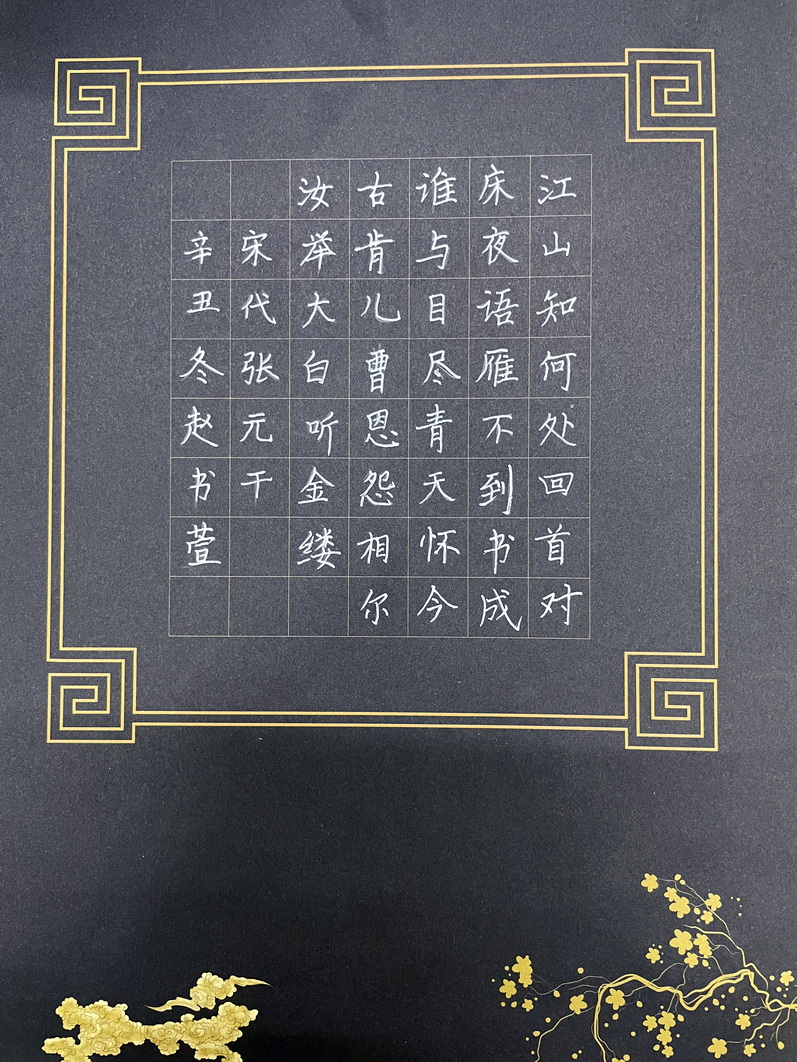 江山知何处回首对
床夜语雁不到书成
谁与目尽青天怀今
古肯儿曹恩怨相尔
汝举大白听金缕
宋代张元干
辛丑冬赵书萱